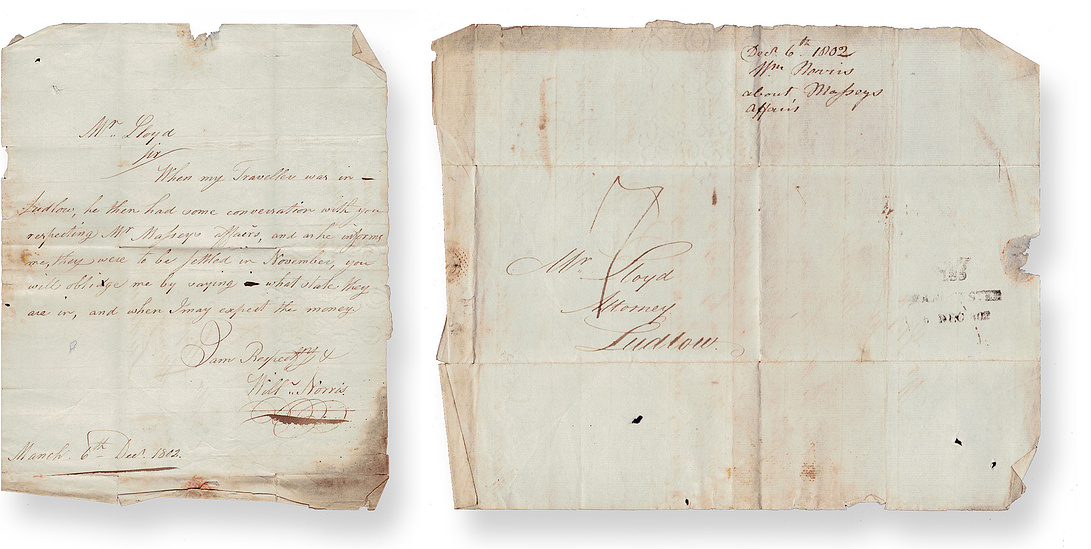 Mr. Lloyd
Sir
When my Traveller was in —
Ludlow, he then had some conversation with you
respecting Mr Masseys affairs, and as he informs
me, they were to be settled in November, you
will oblidge me by saying — what state they
are in, and when I may expect the money.
I am Respectfly &
Willm. Norris.
Manch. 6th Decr. 1802.
Decr. 6th. 1802
Wm Norris
about Masseys
affairs
7
Mr. Lloyd
Attorney
Ludlow.
DEC 802